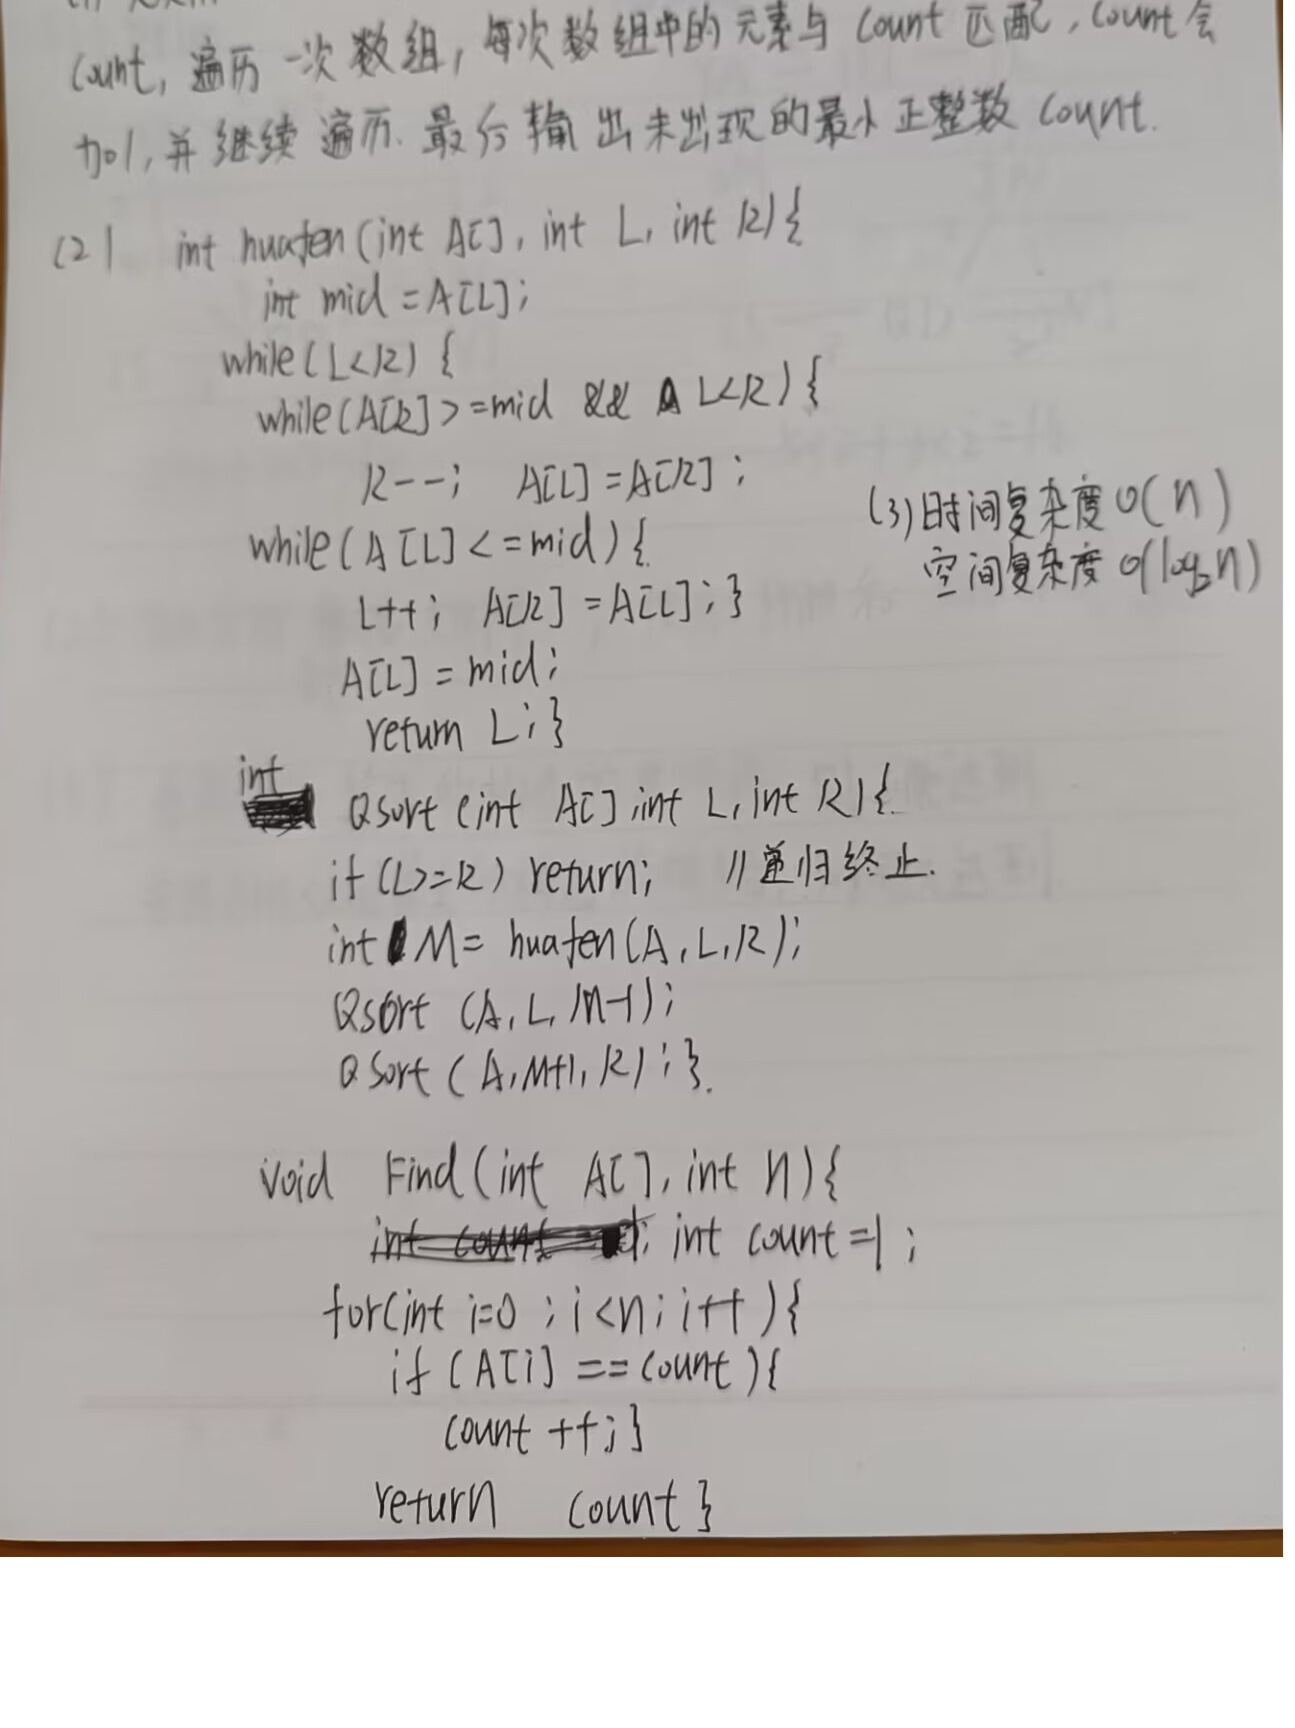 count, 遍历一次数组, 每次数组中的元素与 count 匹配, count会
加1, 并继续遍历. 最后输出未出现的最小正整数 count.
(2) int huafen(int A[], int L, int R){
int mid=A[L];
while(L<R) {
while(A[R]>=mid && L<R){
R--; A[L]=A[R];
while(A[L]<=mid){
L++; A[R]=A[L];}
A[L]=mid;
return L;}
(3)时间复杂度O(n)
空间复杂度O(log₂n)
int Qsort(int A[], int L, int R){
if(L>=R) return; //递归终止.
int M= huafen(A,L,R);
Qsort (A, L, M-1);
Qsort (A, M+1, R);}.
void Find(int A[], int n){
int count=1;
for(int i=0; i<n; i++){
if (A[i]==count){
count++;}
return count}